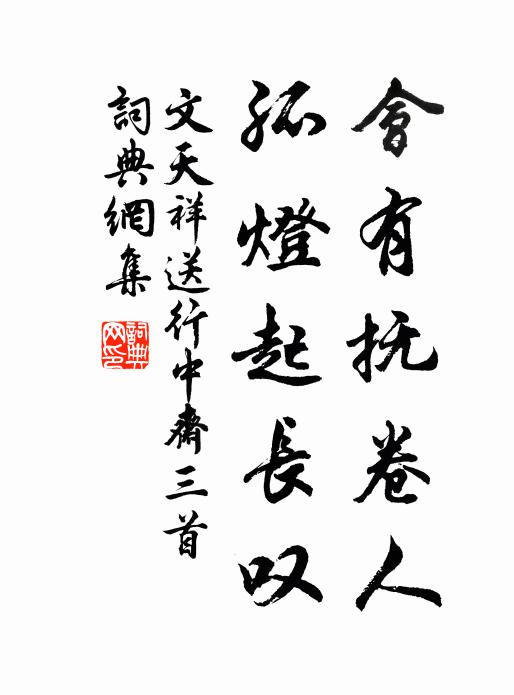 會有抚卷人
孤燈起長叹
文天祥送行中齋三首
詞典網集
詞典網印